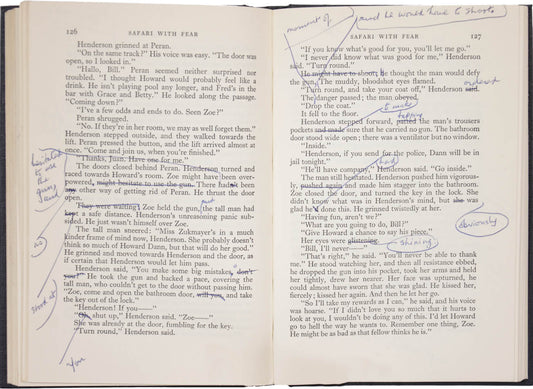 126 SAFARI WITH FEAR
Henderson grinned at Peran.
“On the same track?” His voice was easy. “The door was open, so I looked in.”
“Hallo, Bill.” Peran seemed neither surprised nor troubled. “I thought Howard would probably feel like a drink. He isn't playing pool any longer, and Fred's in the bar with Grace and Betty.” He looked along the passage.
“Coming down?”
“I've a few odds and ends to do. Seen Zoe?”
Peran shrugged.
“No. If they're in her room, we may as well forget them.”
Henderson stepped outside, and they walked towards the lift. Peran pressed the button, and the lift arrived almost at once. “Come and join us, when you're finished.”
“Thanks, Juan. Have one for me.”
The doors closed behind Peran. Henderson turned and raced towards Howard's room. Zoe might have been over-
powered, might hesitate to use the gun. There hadn't been
any other way of getting rid of Peran. He thrust the door
open.
They were waiting! Zoe held the gun, tall man had
kept a safe distance. Henderson's unreasoning panic sub-
sided. He just wasn't himself over Zoe.
The tall man sneered: “Miss Zukmayer's in a much
kinder frame of mind now, Henderson. She probably doesn't
think so much of Howard Dann, but that will do her good.”
He grinned and moved towards Henderson and the door, as
if certain that Henderson would let him pass.
Henderson said, “You make some big mistakes, don't
you?” He took the gun and backed a pace, covering the
tall man, who couldn't get to the door without passing him.
“Zoe, come and open the bathroom door, will you, and take
the key out of the lock.”
“Henderson! If you——”
“Oh, shut up,” Henderson said. “Zoe——”
She was already at the door, fumbling for the key.
“Turn round,” Henderson said.
hesitated
to use
the
gun
put
no
shoot at
you
SAFARI WITH FEAR 127
moment of
and he would have to shoot
“If you know what's good for you, you'll let me go.”
“I never did know what was good for me,” Henderson
said. “Turn round.”
He might have to shoot; he thought the man would defy
the gun. The muddy, bloodshot eyes flamed.
“Turn round, and take your coat off,” Henderson said.
The danger passed; the man obeyed.
“Drop the coat.”
It fell to the floor.
Henderson stepped forward, patted the man's trousers
pockets and made sure that he carried no gun. The bathroom
door stood wide open; there was a ventilator but no window.
“Inside.”
“Henderson, if you send for the police, Dann will be in
jail tonight.”
“He'll have company,” Henderson said. “Go inside.”
The man still hesitated. Henderson pushed him vigorous-
ly, pushed again and made him stagger into the bathroom.
Zoe closed the door, and turned the key in the lock. She
didn't know what was in Henderson's mind, but she was
glad he'd done this. He grinned twistedly at her.
“Having fun, aren't we?”
“What are you going to do, Bill?”
“Give Howard a chance to say his piece.”
Her eyes were glistening.
“Bill, I'll never——”
“That's right,” he said. “You'll never be able to thank
me.” He stood watching her, and then all resistance ebbed,
he dropped the gun into his pocket, took her arms and held
her tightly, drew her nearer. Her face was upturned, he
could almost have sworn that she was glad. He kissed her,
fiercely; kissed her again. And then he let her go.
“So I'll take my rewards as I can,” he said, and his voice
was hoarse. “If I didn't love you so much that it hurts to
look at you, I wouldn't be doing any of this. I'd let Howard
go to hell the way he wants to. Remember one thing, Zoe.
He might be as bad as that fellow thinks he is.”
to make
obviously
shining